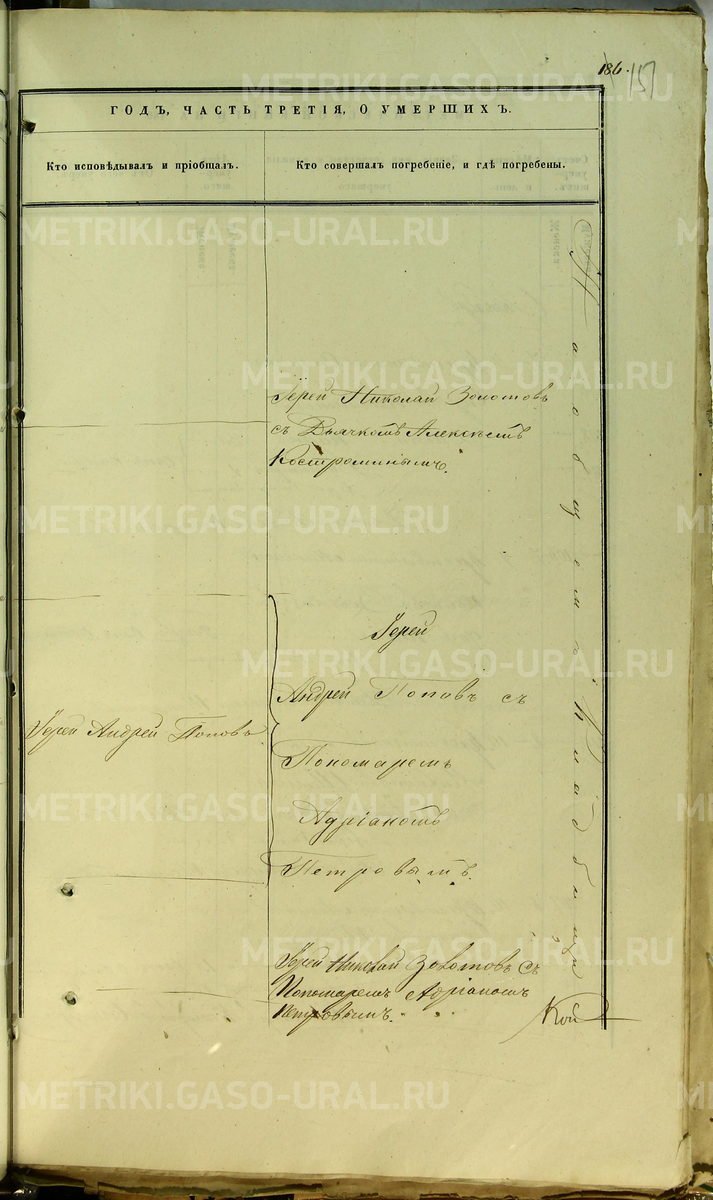 186.
151
ГОДЪ, ЧАСТЬ ТРЕТІЯ, О УМЕРШИХЪ.
Кто исповѣдывалъ и пріобщалъ.
Кто совершалъ погребеніе, и гдѣ погребены.
Іерей Николай Золотовъ
съ Дьячкомъ Алексѣемъ
Костроминымъ.
Іерей Андрей Поповъ
Іерей
Андрей Поповъ съ
Пономаремъ
Адріаномъ
Петровымъ.
Іерей Николай Золотовъ съ
Пономаремъ Адріаномъ
Петровымъ.
На общемъ Кладбищѣ
METRIKI.GASO-URAL.RU